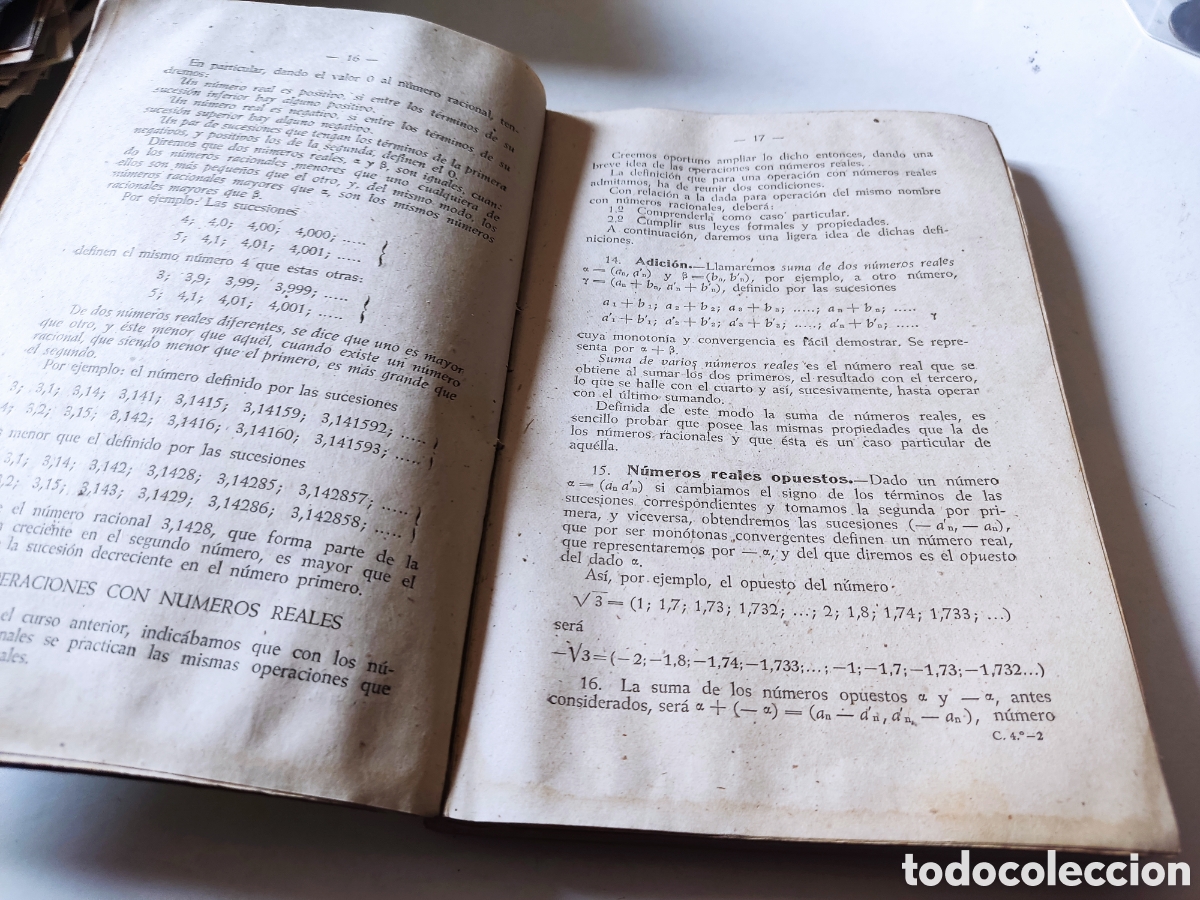 — 16 —
En particular, dando el valor 0 al número racional, ten-
dremos:
Un número real es positivo, si entre los términos de su
sucesión inferior hay alguno positivo.
Un número real es negativo, si entre los términos de su
sucesión superior hay alguno negativo.
Un par de sucesiones que tengan los términos de la primera
negativos, y positivos los de la segunda, definen el 0.
Diremos que dos números reales, α y β, son iguales, cuan-
do los números racionales menores que uno cualquiera de
ellos son más pequeños que el otro, y, del mismo modo, los
números racionales mayores que α, son los mismos números
racionales mayores que β.
Por ejemplo: Las sucesiones
4; 4,0; 4,00; 4,000; .....
5; 4,1; 4,01; 4,001; .....
definen el mismo número 4 que estas otras:
3; 3,9; 3,99; 3,999; .....
5; 4,1; 4,01; 4,001; .....
De dos números reales diferentes, se dice que uno es mayor
que otro, y éste menor que aquél, cuando existe un número
racional, que siendo menor que el primero, es más grande que
el segundo.
Por ejemplo: el número definido por las sucesiones
3; 3,1; 3,14; 3,141; 3,1415; 3,14159; 3,141592; .....
4; 3,2; 3,15; 3,142; 3,1416; 3,14160; 3,141593; .....
menor que el definido por las sucesiones
3,1; 3,14; 3,142; 3,1428; 3,14285; 3,142857; .....
3,2; 3,15; 3,143; 3,1429; 3,14286; 3,142858; .....
el número racional 3,1428, que forma parte de la
creciente en el segundo número, es mayor que el
la sucesión decreciente en el número primero.
ERACIONES CON NUMEROS REALES
el curso anterior, indicábamos que con los nú-
nales se practican las mismas operaciones que
ales.
— 17 —
Creemos oportuno ampliar lo dicho entonces, dando una
breve idea de las operaciones con números reales.
La definición que para una operación con números reales
admitamos, ha de reunir dos condiciones.
Con relación a la dada para operación del mismo nombre
con números racionales, deberá:
1.º Comprenderla como caso particular.
2.º Cumplir sus leyes formales y propiedades.
A continuación, daremos una ligera idea de dichas defi-
niciones.
14. Adición.—Llamaremos suma de dos números reales
α = (aₙ, a'ₙ) y β = (bₙ, b'ₙ), por ejemplo, a otro número,
γ = (aₙ + bₙ, a'ₙ + b'ₙ), definido por las sucesiones
a₁ + b₁; a₂ + b₂; a₃ + b₃; .....; aₙ + bₙ; ..... γ
a'₁ + b'₁; a'₂ + b'₂; a'₃ + b'₃; .....; a'ₙ + b'ₙ; .....
cuya monotonía y convergencia es fácil demostrar. Se repre-
senta por α + β.
Suma de varios números reales es el número real que se
obtiene al sumar los dos primeros, el resultado con el tercero,
lo que se halle con el cuarto y así, sucesivamente, hasta operar
con el último sumando.
Definida de este modo la suma de números reales, es
sencillo probar que posee las mismas propiedades que la de
los números racionales y que ésta es un caso particular de
aquélla.
15. Números reales opuestos.—Dado un número
α = (aₙ a'ₙ) si cambiamos el signo de los términos de las
sucesiones correspondientes y tomamos la segunda por pri-
mera, y viceversa, obtendremos las sucesiones (— a'ₙ, — aₙ),
que por ser monótonas convergentes definen un número real,
que representaremos por — α, y del que diremos es el opuesto
del dado α.
Así, por ejemplo, el opuesto del número
√3 = (1; 1,7; 1,73; 1,732; ...; 2; 1,8; 1,74; 1,733; ...)
será
—√3=(—2;—1,8;—1,74;—1,733;...;—1;—1,7;—1,73;—1,732...)
16. La suma de los números opuestos α y — α, antes
considerados, será α + (— α) = (aₙ — a'ₙ, a'ₙ, — aₙ), número
C. 4.º—2
todocoleccion